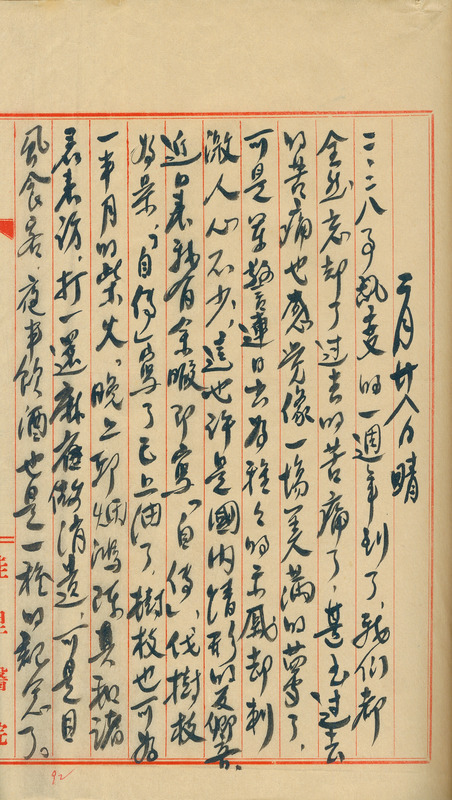 二月廿八日 晴
二、二八事亂變的一週年到了,我們都
全然忘却了過去的苦痛了,甚至過去
的苦痛也感覺像一場美滿的夢了,
可是軍警連日去為種々的示威却刺
激人心不少,這也許是國內情形的反響吧。
近日來稍有余暇即寫「自傳」,伐樹枝
為樂,「自傳」寫了已上油了,樹枝也可為
一年月的柴火。晚上郭烟鴻陳其和諸
君來訪,打一還麻雀做消遣,可是目
風食客夜半飲酒也是一種的紀念了。
佳里醫院
92